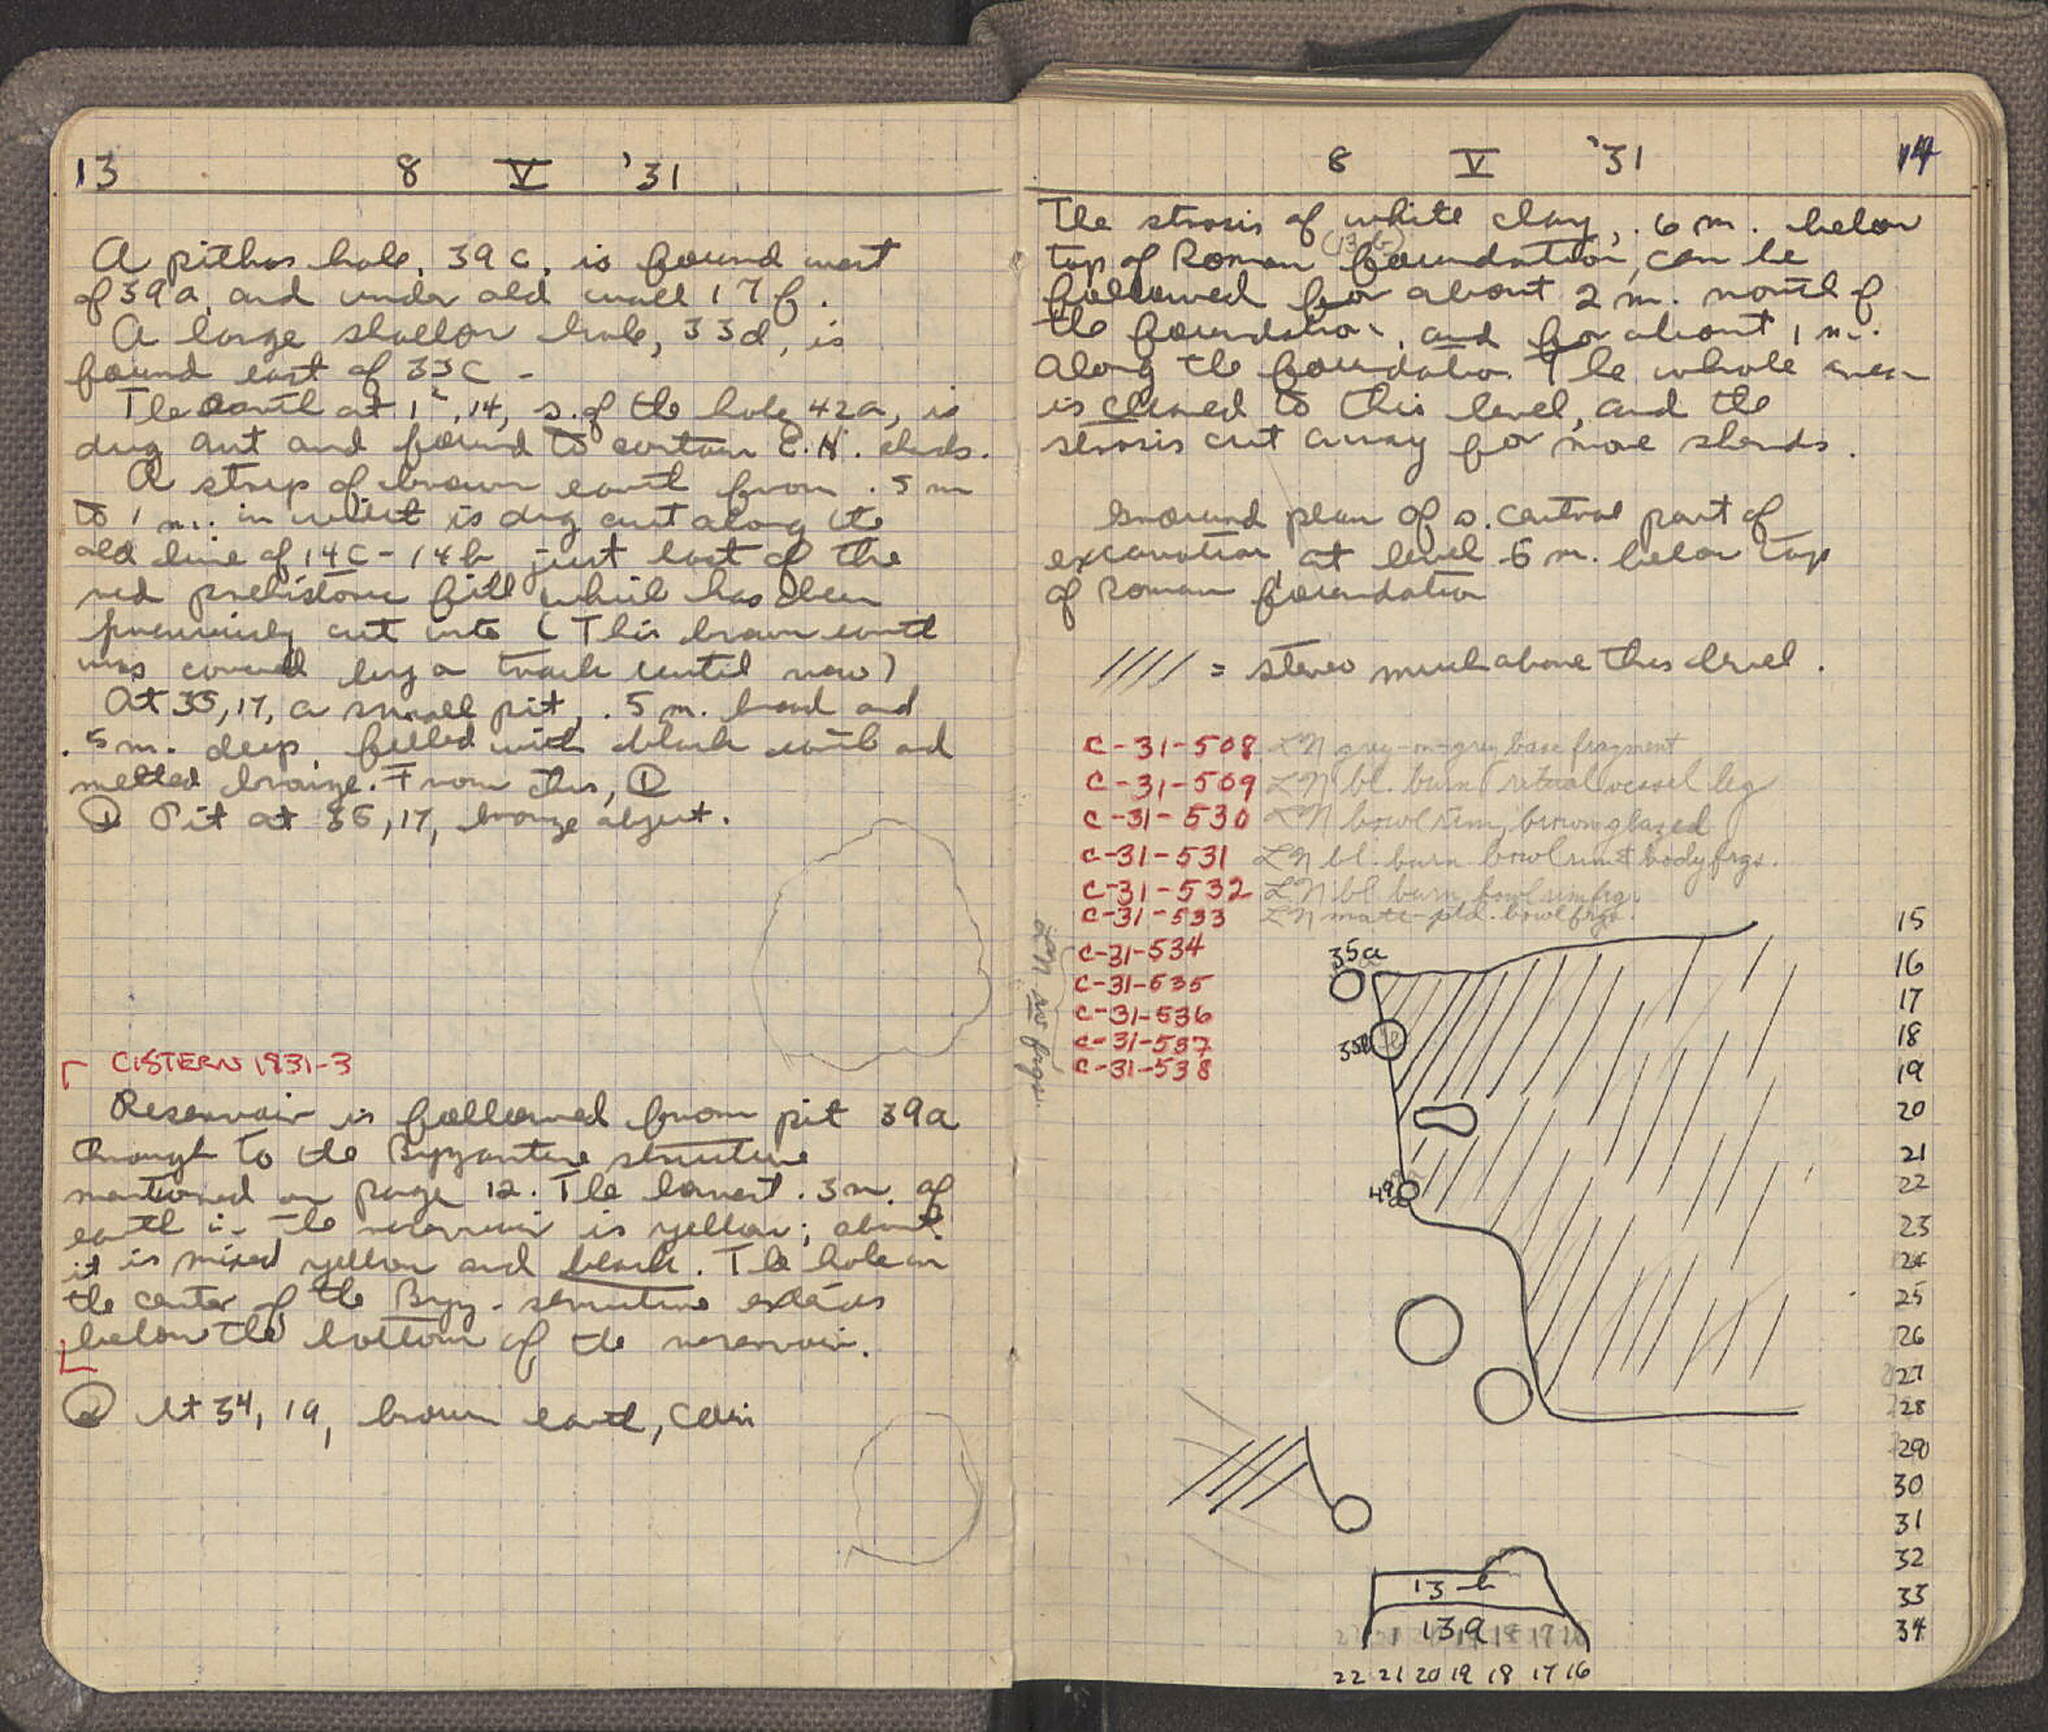 13 8 V '31
A pithos hole, 39c, is found west
of 39a, and under old wall 17f.
A large shallow hole, 33d, is
found east of 33c -
The earth at 12, 14, s. of the hole 42a, is
dug out and found to contain E.H. sherds.
A strip of brown earth from .5 m
to 1 m. in width is dug out along the
old line of 14c - 14b just east of the
red prehistoric fill which has been
previously cut into (This brown earth
was covered by a track until now)
At 35, 17, a small pit, .5 m. broad and
.5 m. deep filled with black earth and
melted bronze. From this, ①
① Pit at 35, 17, bronze object.
CISTERN 1931-3
Reservoir is followed from pit 39a
through to the Byzantine structure
mentioned on page 12. The lowest .3 m. of
earth in the reservoir is yellow; above
it is mixed yellow and black. The hole in
the center of the Byz. structure extends
below the bottom of the reservoir.
② At 34, 19, brown earth, coin
8 V '31 14
The strosis of white clay, .6 m. below
top of Roman (13b) foundation, can be
followed for about 2 m. north of
the foundation, and for about 1 m.
along the foundation. The whole area
is cleared to this level, and the
strosis cut away for more sherds.
Ground plan of s. central part of
excavation at level .6 m. below top
of Roman foundation
//// = stereo much above this level.
C-31-508 LN grey-on-grey base fragment
C-31-509 LN bl. burn ritual vessel leg
C-31-530 LN bowl rim, brown glazed
C-31-531 LN bl. burn bowl rim & body frgs.
C-31-532 LN bl burn bowl rim frg.
C-31-533 LN matt-ptd. bowl frgs.
C-31-534
C-31-535
C-31-536
C-31-537
C-31-538
LN frgs.
35a
35b
49a
13-b
13a
15
16
17
18
19
20
21
22
23
24
25
26
27
28
29
30
31
32
33
34
22 21 20 19 18 17 16